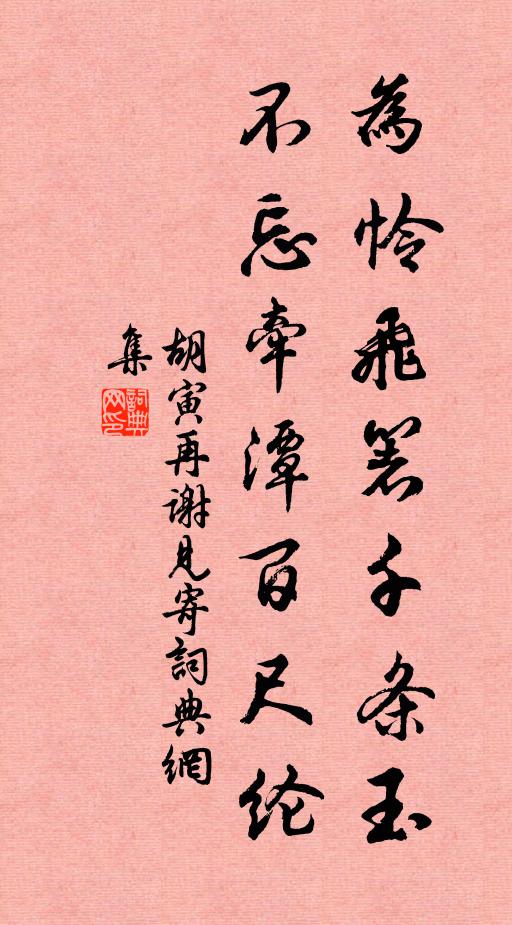 為怜飛箸千条玉
不忘牽潭百尺纶
胡寅再谢見寄詞典網
集
詞典网印